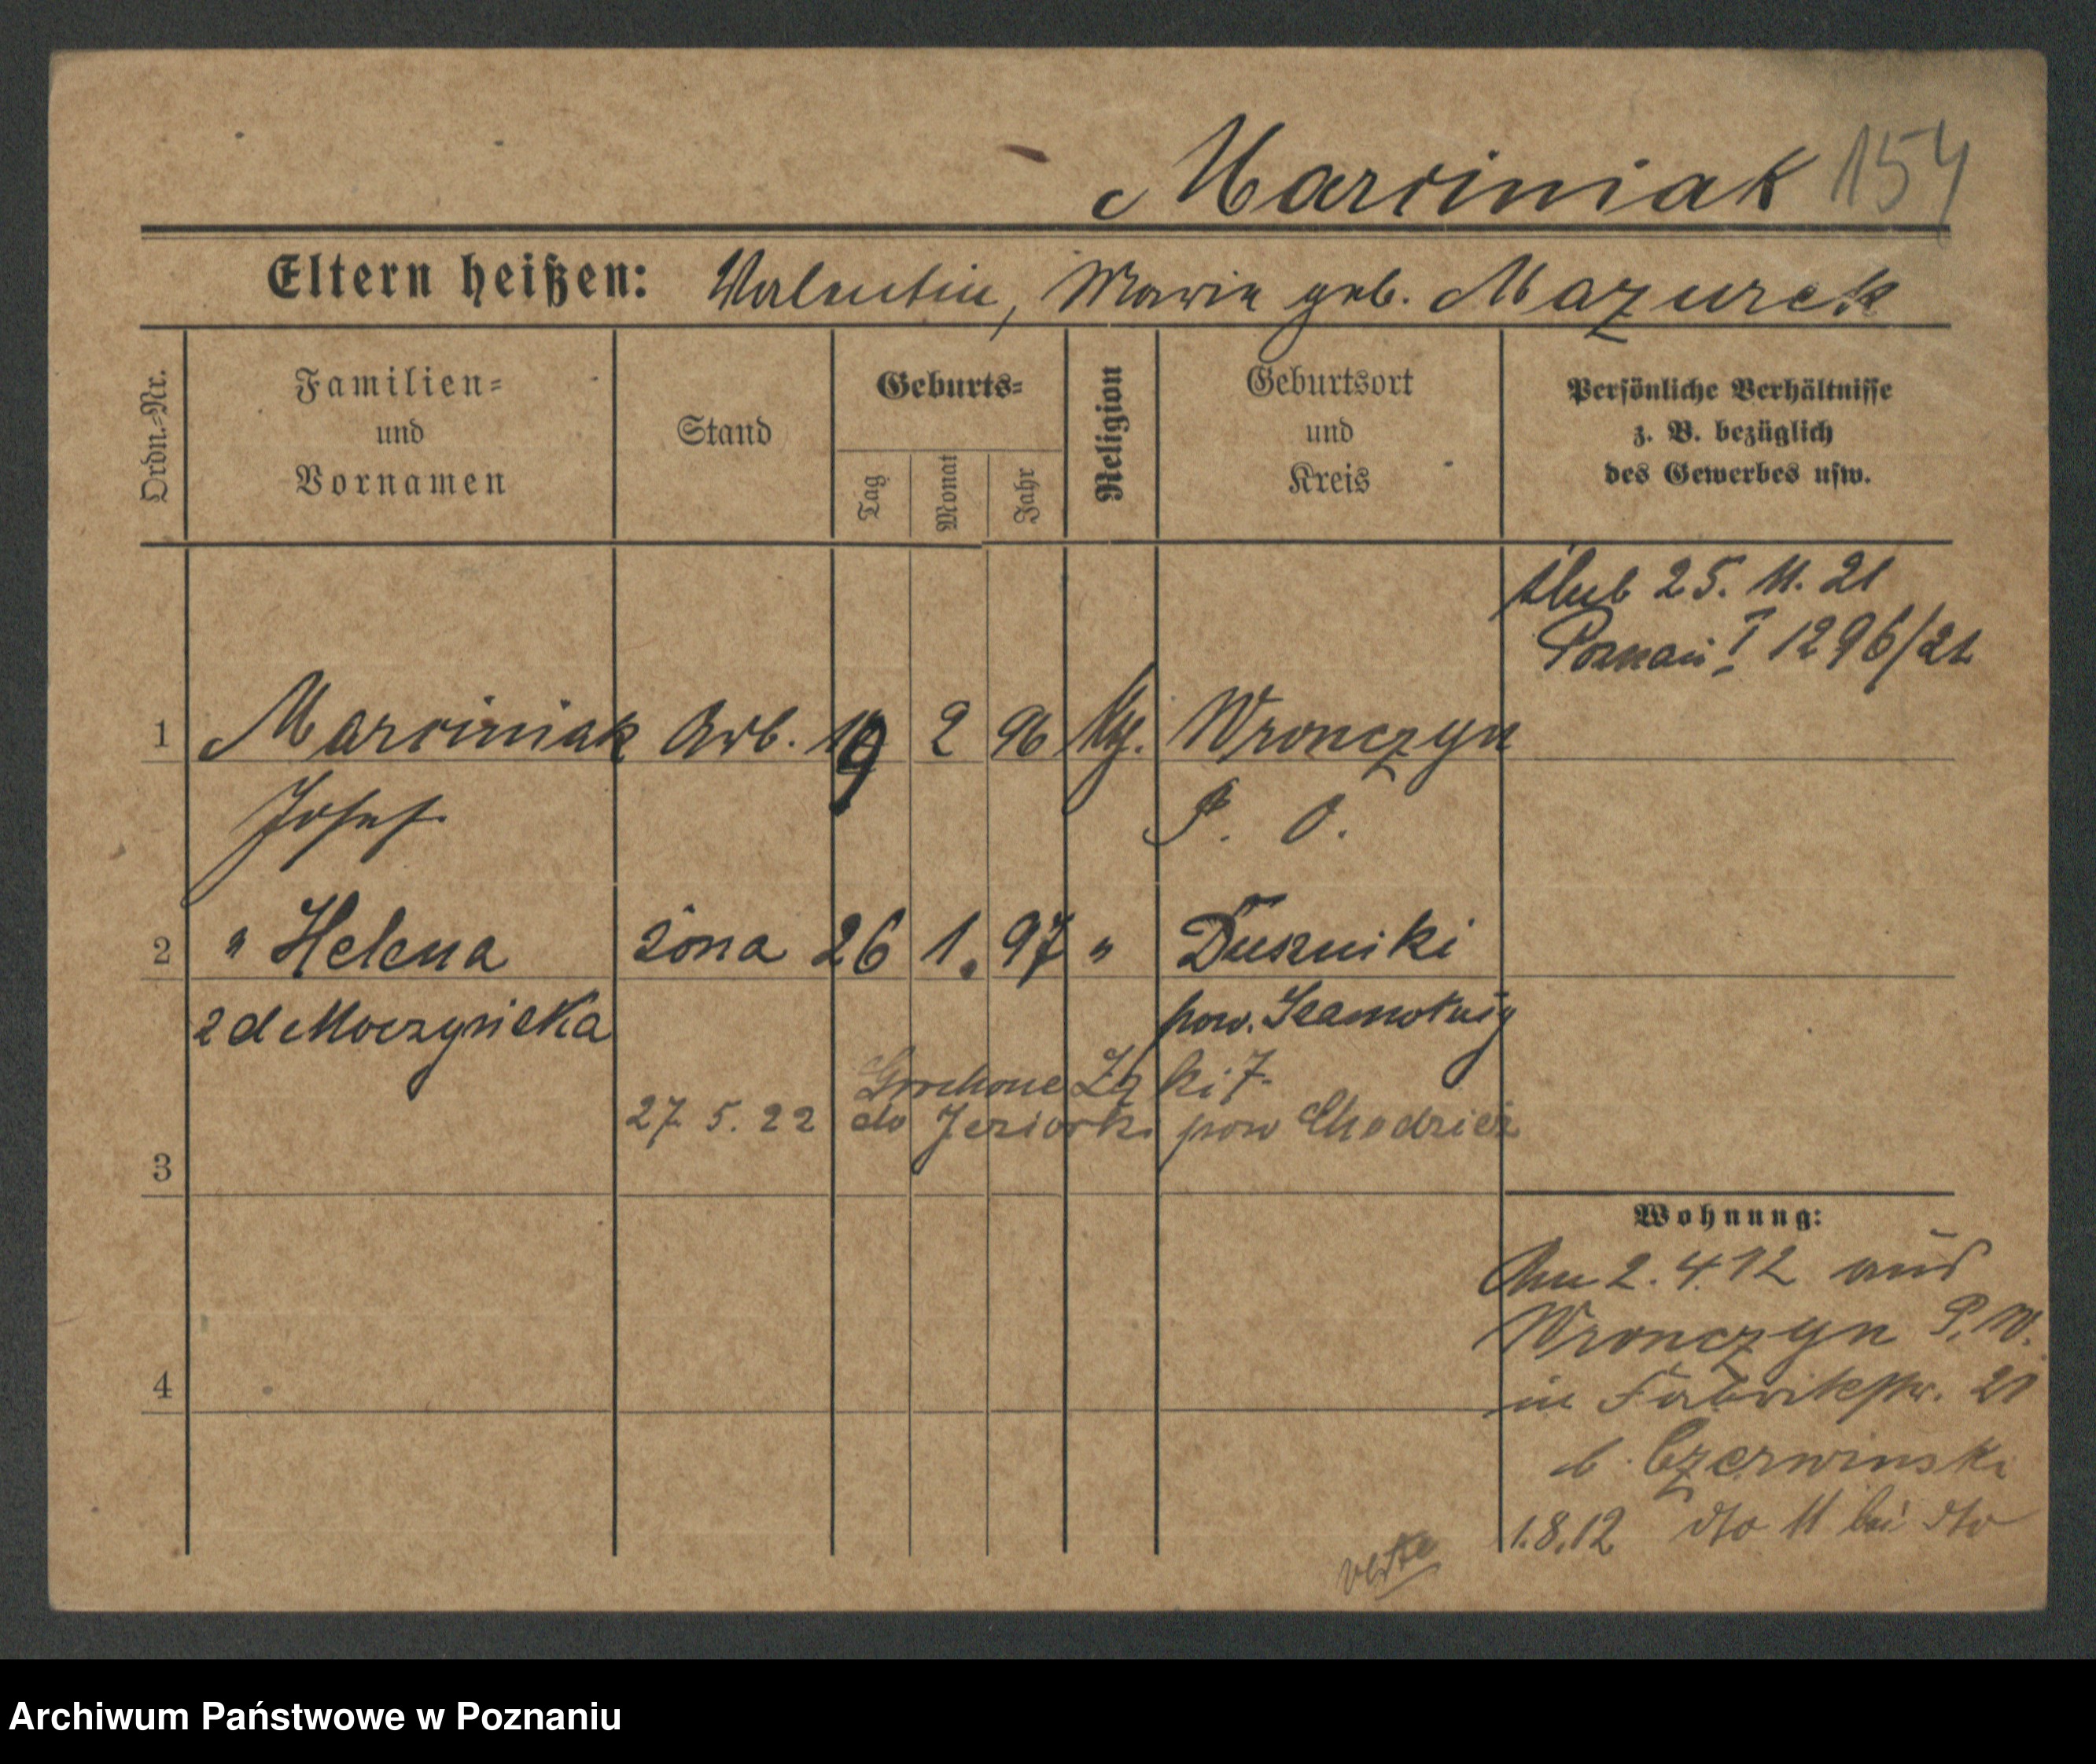 Marciniak 154
Eltern heißen: Valentin, Maria geb. Mazurek
Ordn.-Nr.
Familien-
und
Vornamen
Stand
Geburts-
Tag
Monat
Jahr
Religion
Geburtsort
und
Kreis
Persönliche Verhältnisse
z. B. bezüglich
des Gewerbes usw.
ślub 25. 11. 21
Poznań I 1296/21
1 Marciniak Arb. 19 2 96 Wronczyn
Josef P. O.
2 " Helena żona 26 1. 97 " Duszniki
zd Moczyńska pow. Szamotuły
27. 5. 22 do Jeziorki pow Chodzież
3
Wohnung:
An 2. 4. 12 aus
Wronczyn P. W.
4 in Fabrikstr. 21
b. Czerwinski
1. 8. 12 dto 11 bei dto
Archiwum Państwowe w Poznaniu